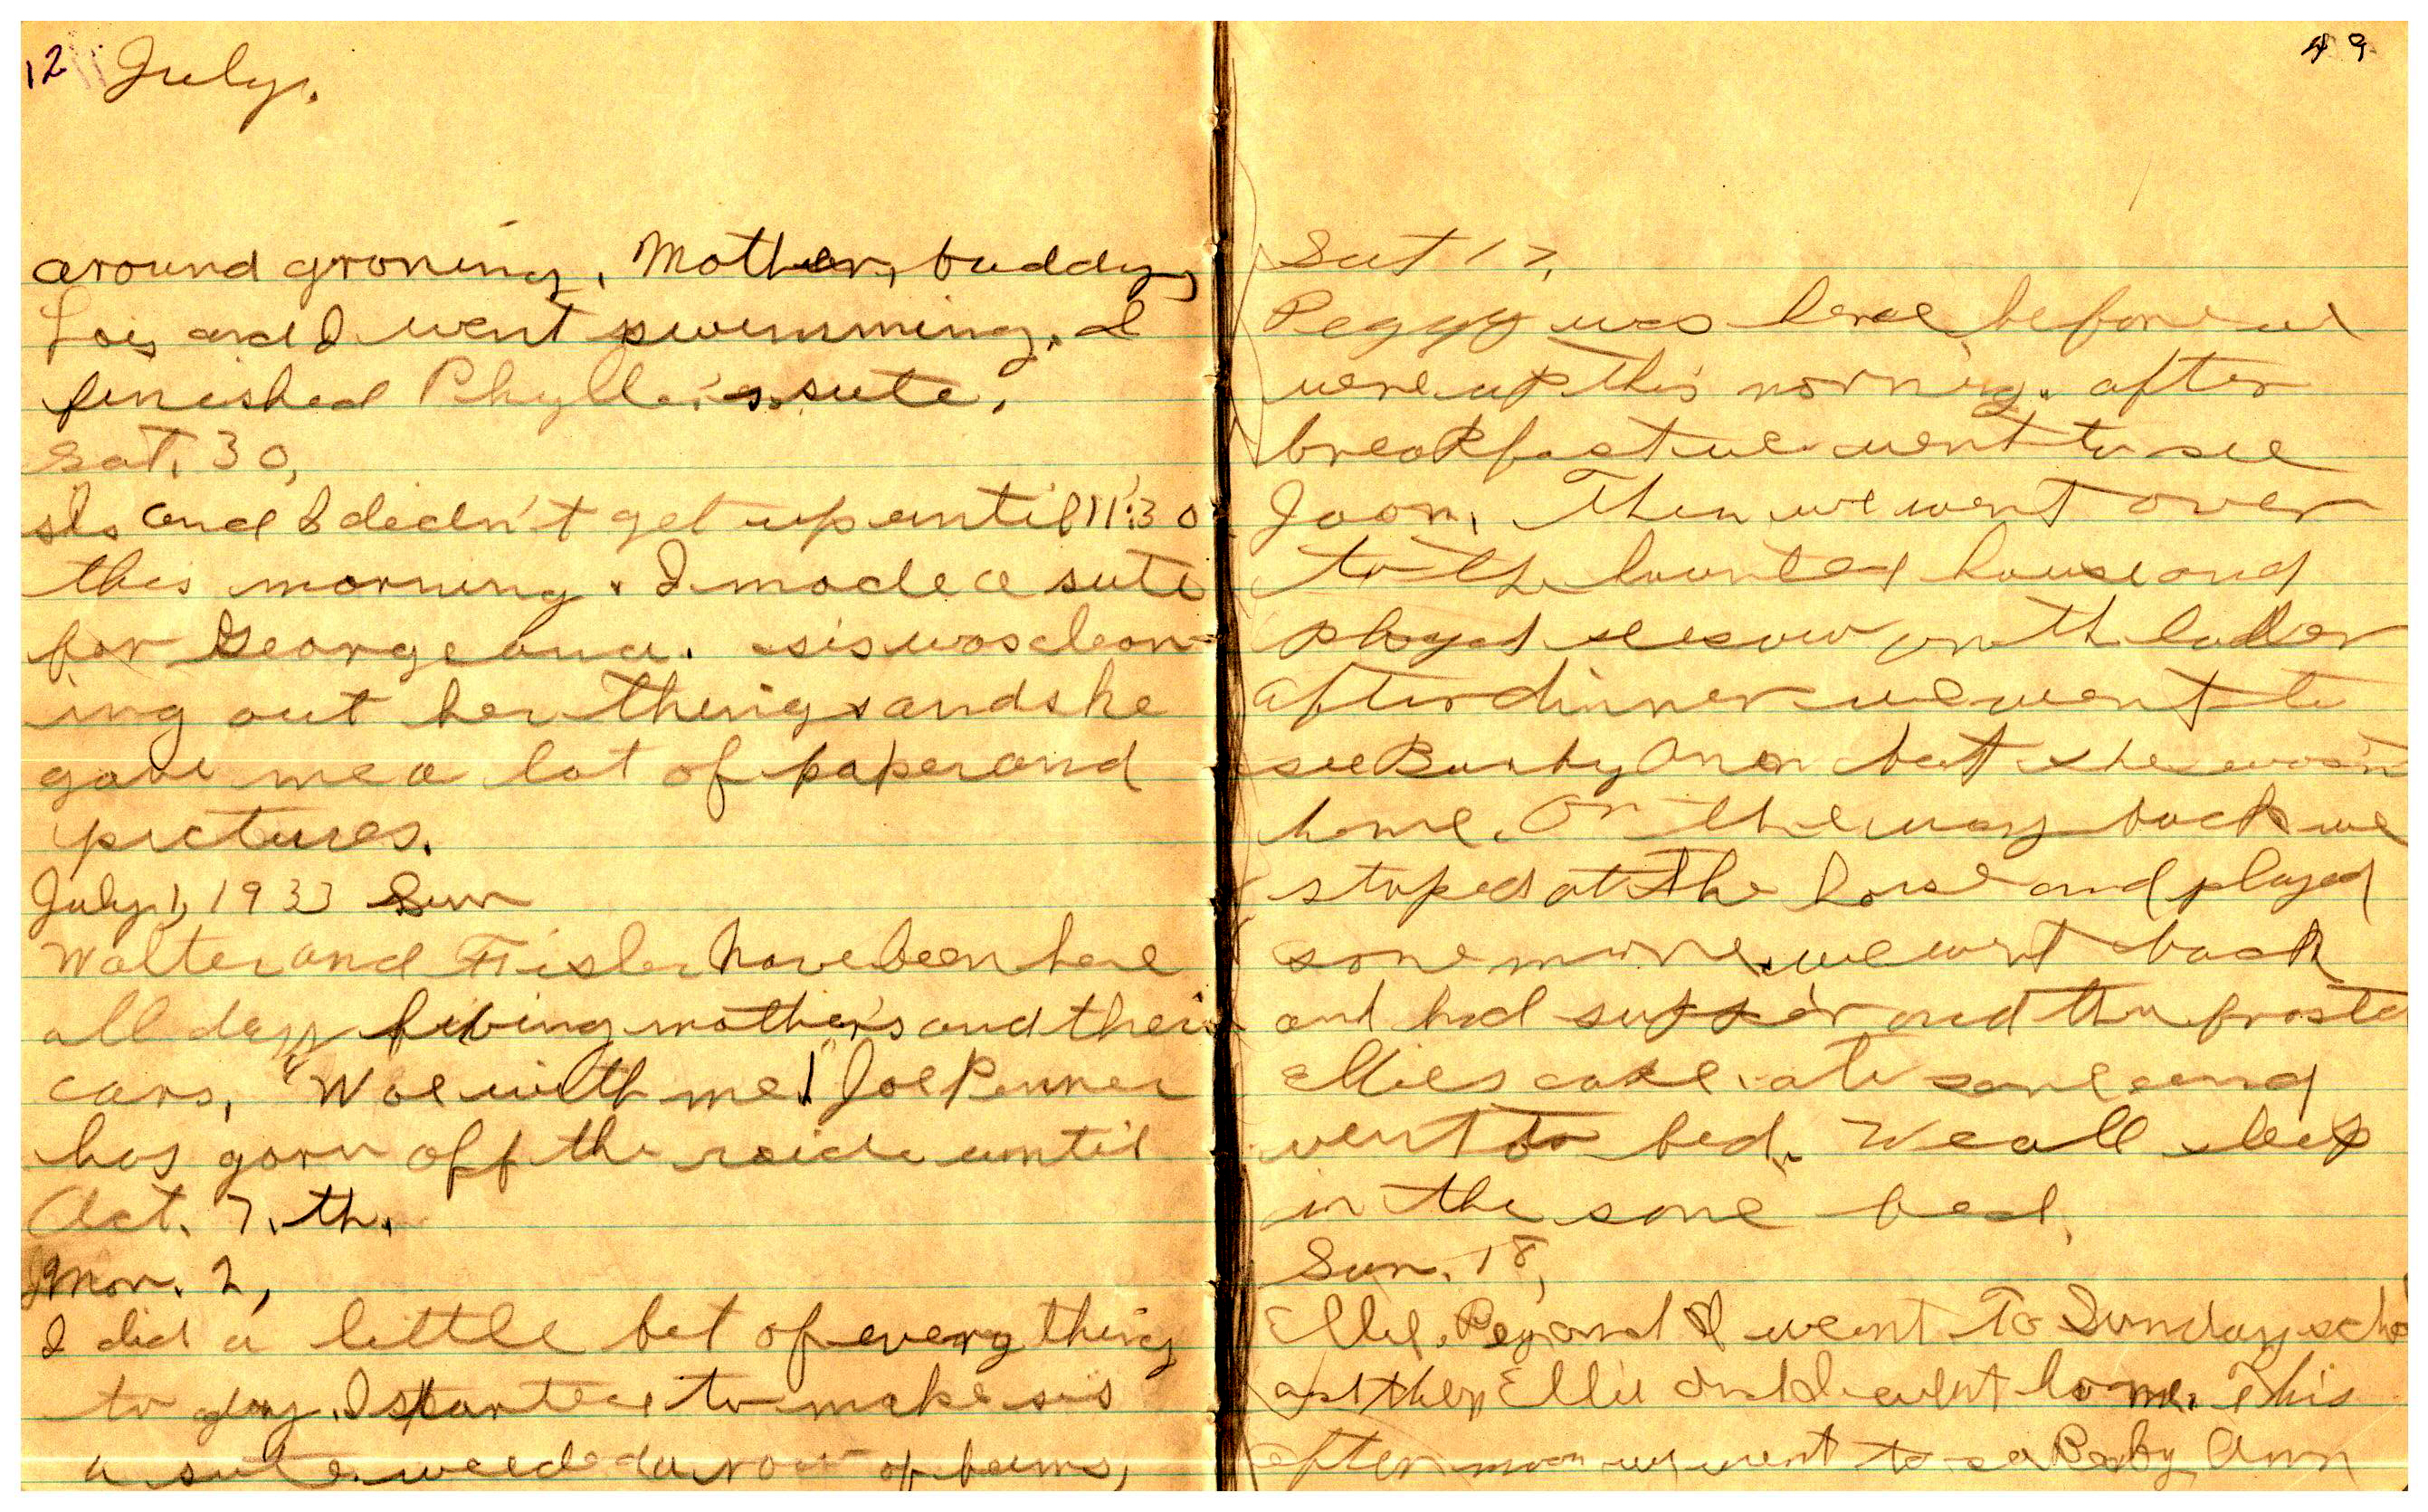 12 July.
around groning, Mother, buddy,
Lois and I went swimming. I
finished Phyllis's sute.
Sat. 30,
sis and I didn't get up until 11:30
this morning. I made a sute
for Georgeana. sis was clean-
ing out her things and she
gave me a lot of paper and
pictures.
July 1, 1933 Sun
Walter and have been here
all day fixing mother's and their
cars, "Woe with me! Joe Penner
has gorn off the raide until
Oct. 7.th.
Mon. 2,
I did a little bit of every thing
to day. I started to make sis
a sute. weeded a row of beans,
49
Sat 17,
Peggy was here before we
were up this morning. after
breakfast we went to see
Joan. Then we went over
to the haunted house and
played seesaw on th ladder
after dinner we went to
see Ann but she wasn't
home. On the way back we
stoped at the house and played
some more. we went back
and had supper and then frosted
Ellies cake. ate some and
went to bed. We all sleep
in the same bed.
Sun. 18,
Ellie, Peg and I went To Sunday schoo
and then Ellie and I went home. This
after noon we went to se Ann